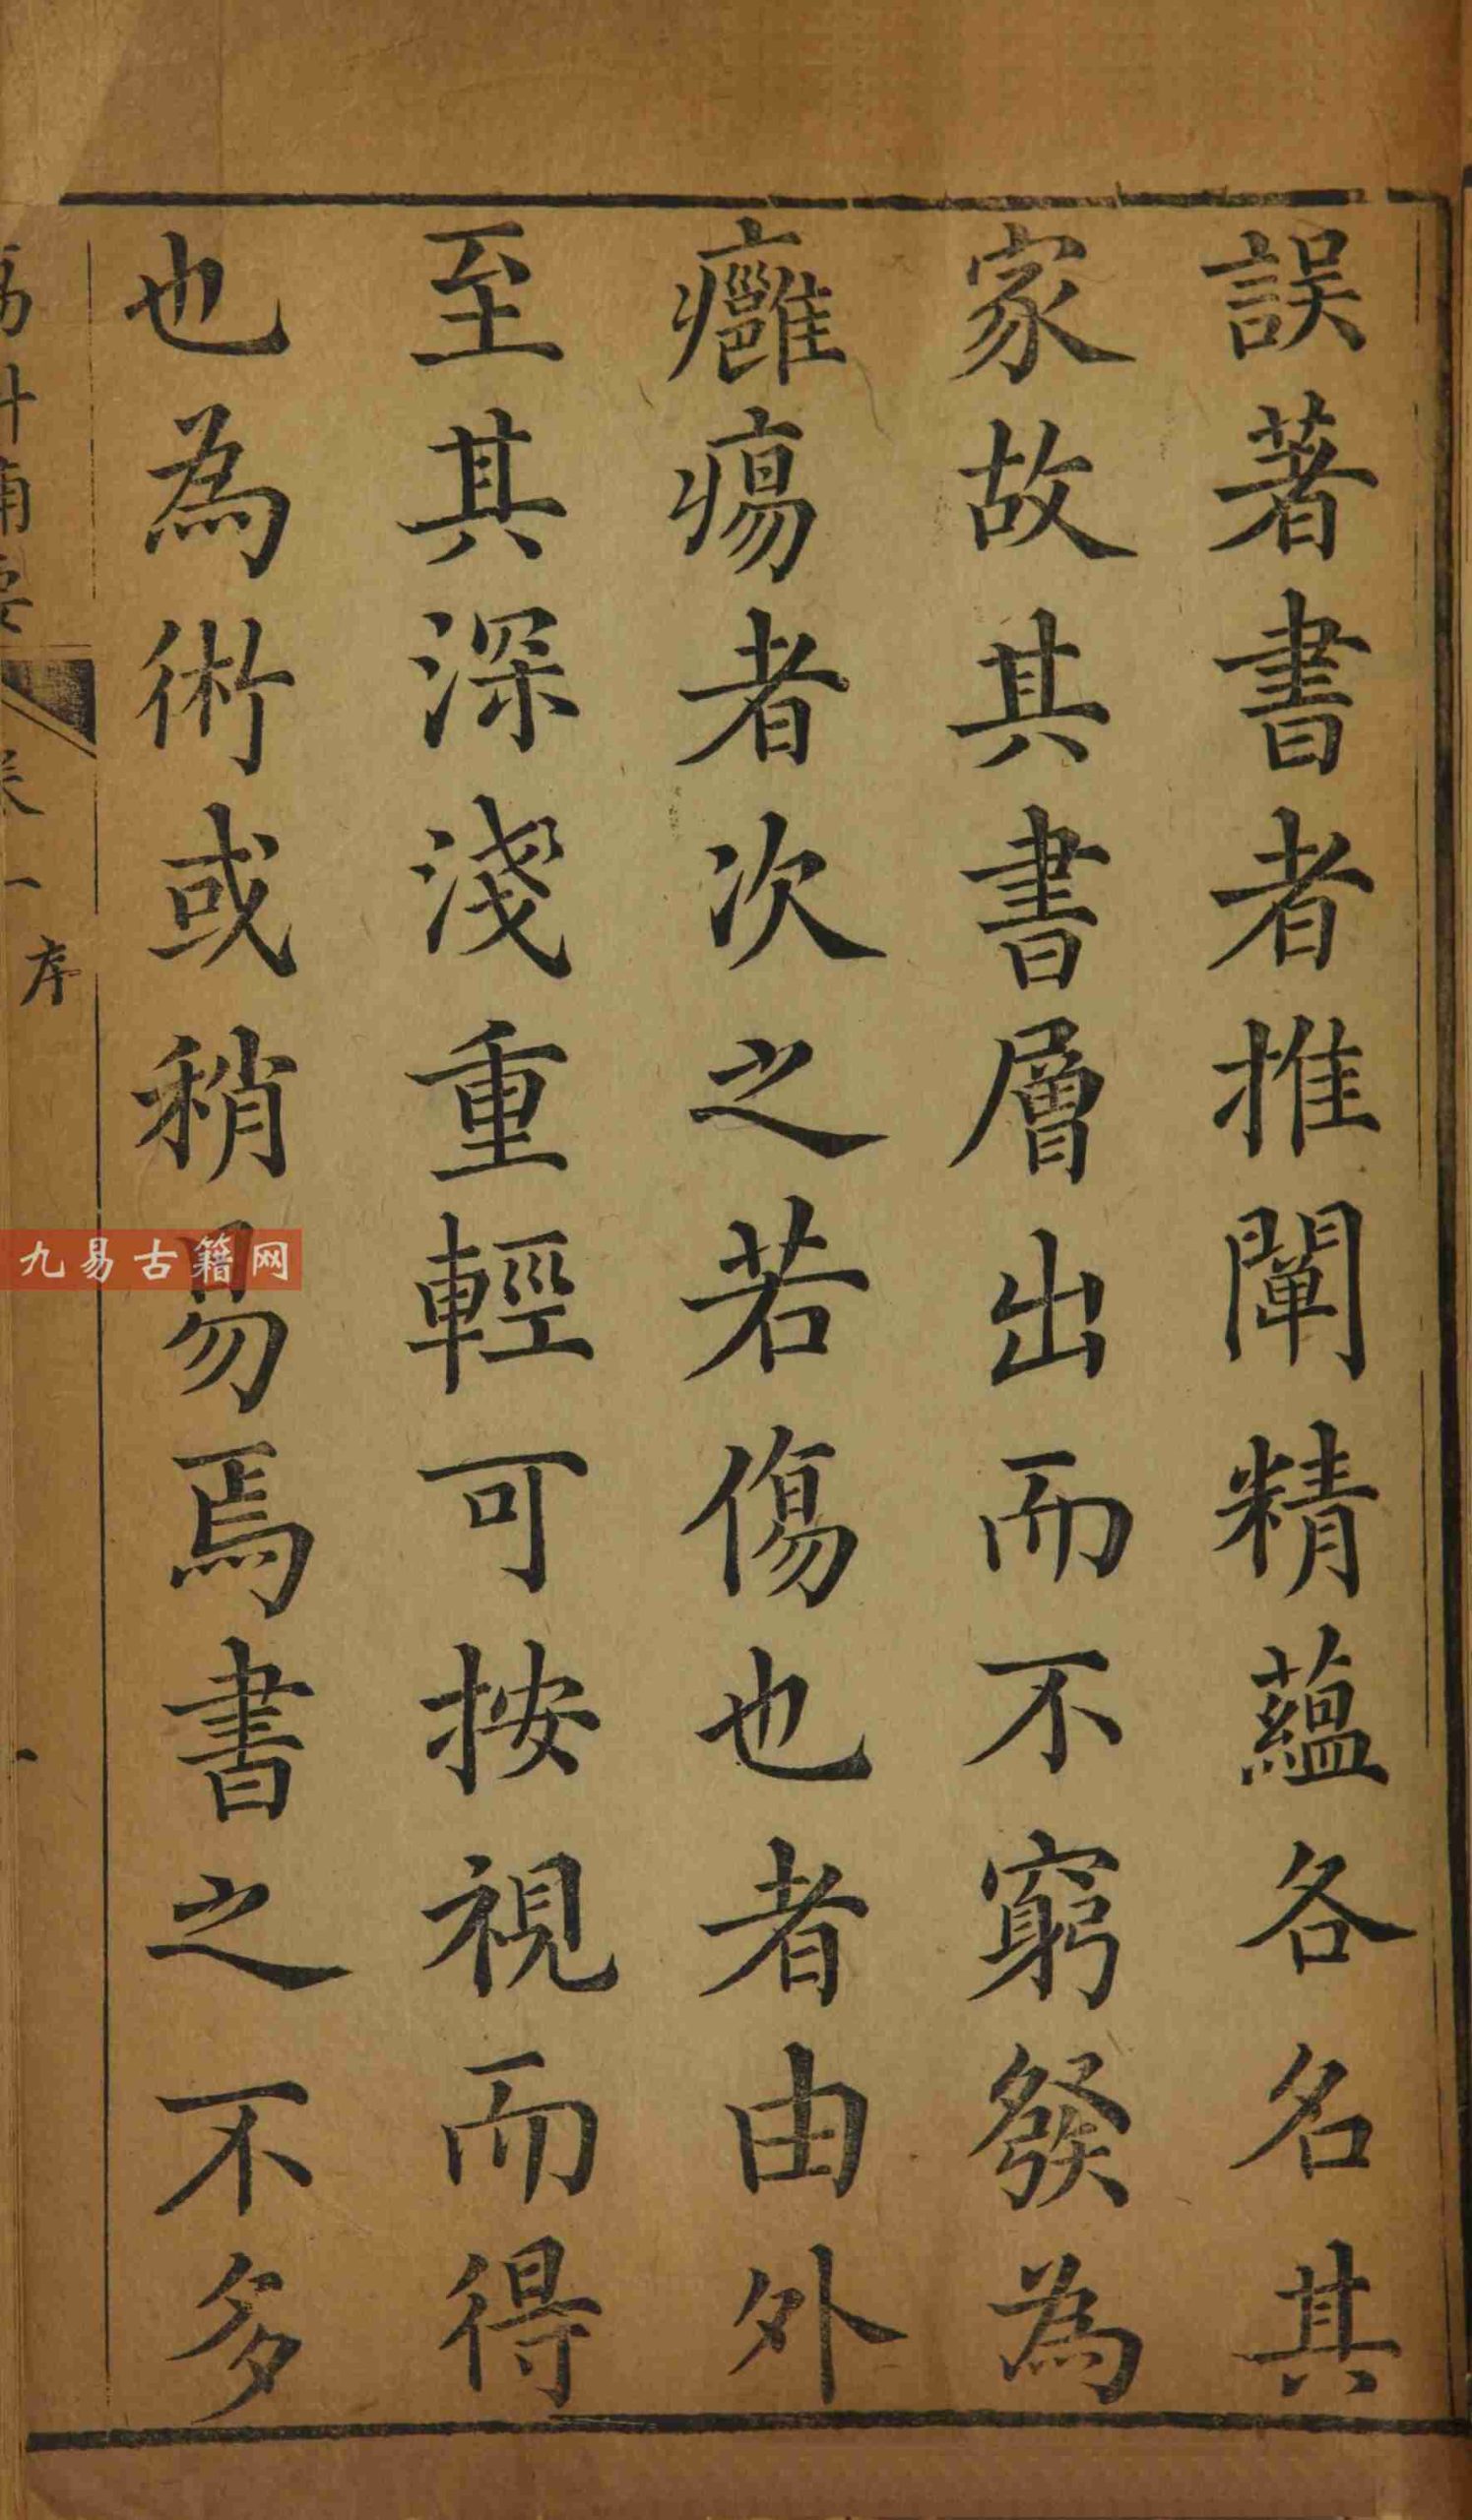 誤著書者推闡精蘊各名其
家故其書層出而不窮發為
癰瘍者次之若傷也者由外
至其深淺重輕可按視而得
也為術或稍易焉書之不多
傷科補要 卷一 序 一
九易古籍网